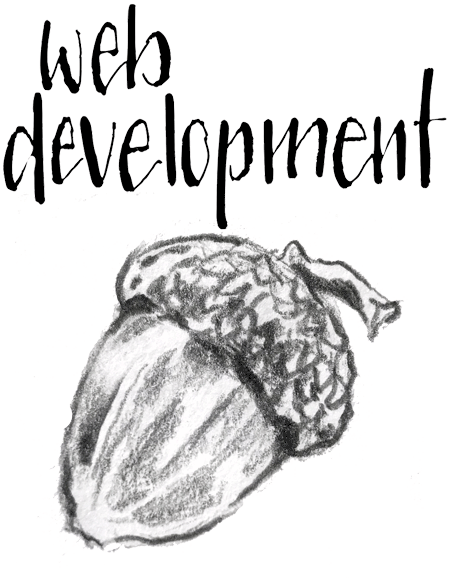 web
development